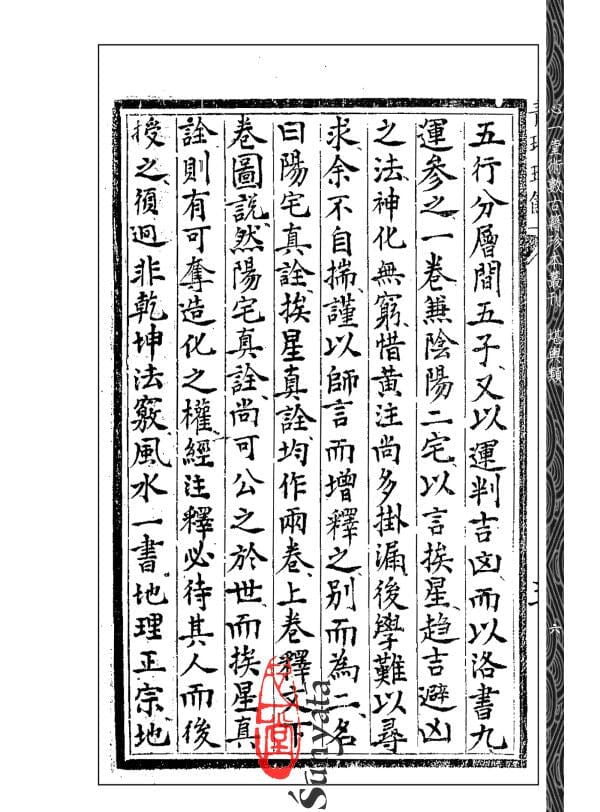 五行分層間五子又以運判吉凶而以洛書九
運參之一卷兼陰陽二宅以言挨星趨吉避凶
之法神化無窮惜黃注尚多掛漏後學難以尋
求余不自揣謹以師言而增釋之別而為二名
曰陽宅真詮挨星真詮均作兩卷上卷釋文下
卷圖說然陽宅真詮尚可公之於世而挨星真
詮則有可奪造化之權經注釋必待其人而後
授之須迥非乾坤法竅風水一書地理正宗地
心一堂術數古籍珍本叢刊 堪輿類
六
心一堂
Śūnyatā